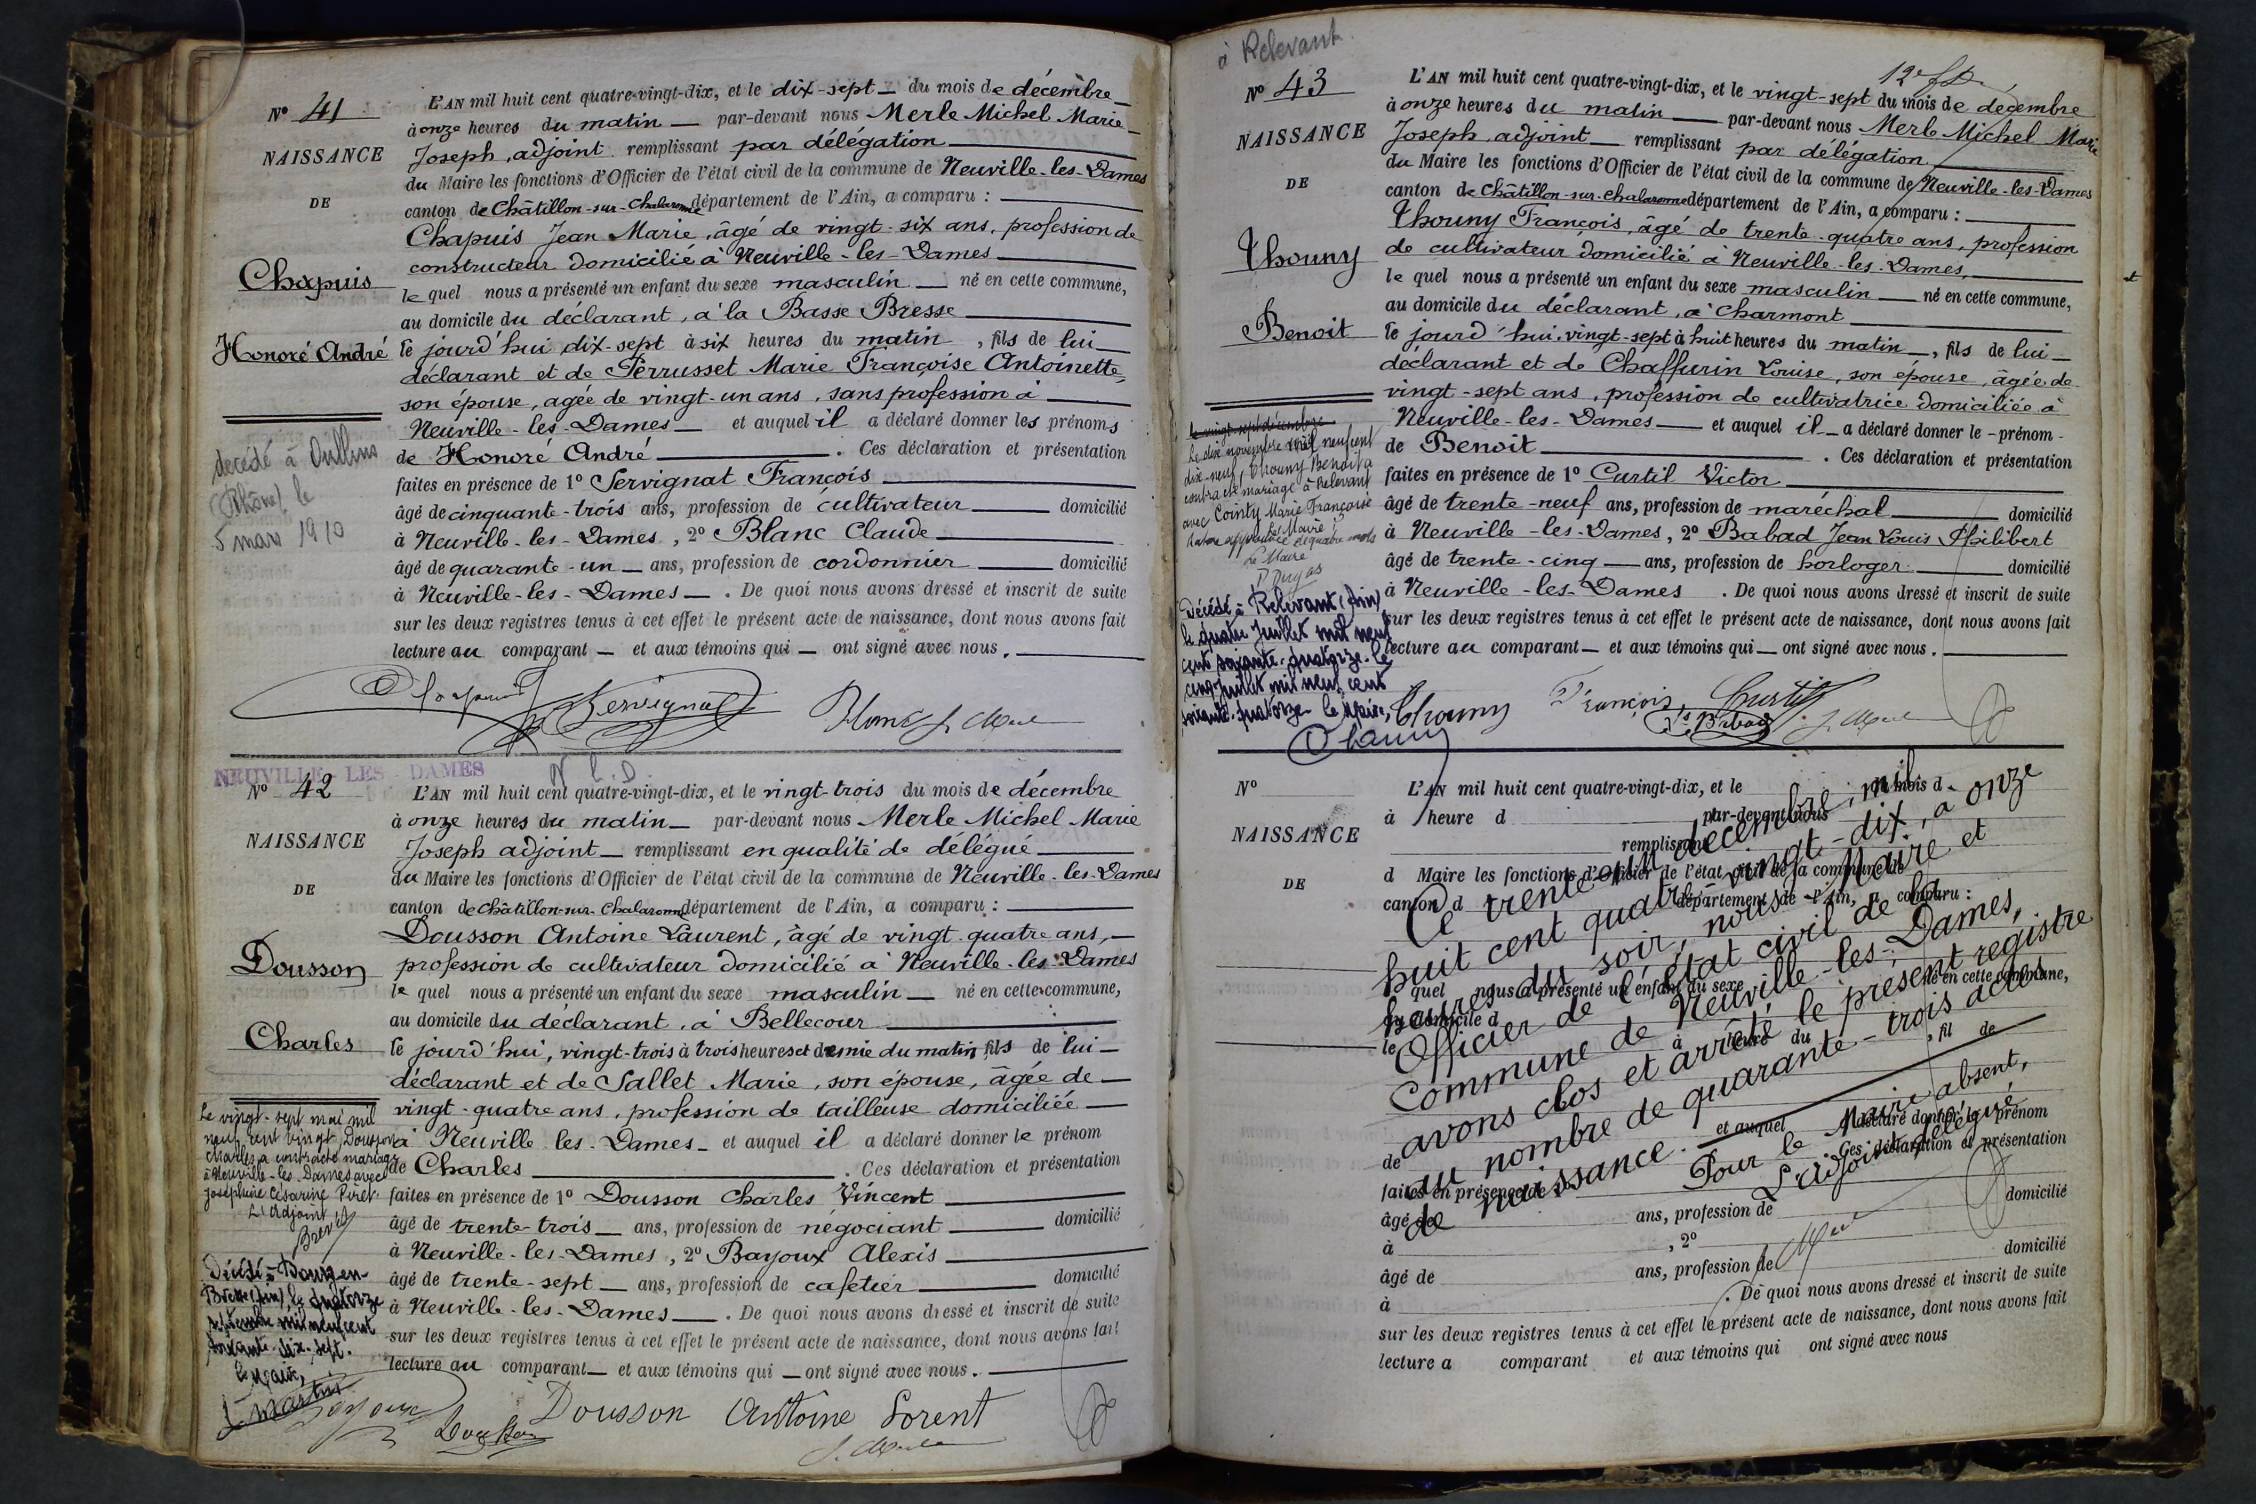 N° 41
NAISSANCE
DE
Chapuis
Honoré André
decédé à Oullins
(Rhône) le
5 mars 1910
L'AN mil huit cent quatre-vingt-dix, et le dix-sept du mois de décembre
à onze heures du matin par-devant nous Merle Michel Marie
Joseph, adjoint remplissant par délégation
du Maire les fonctions d'Officier de l'état civil de la commune de Neuville-les-Dames
canton de Châtillon-sur-Chalaronne département de l'Ain, a comparu :
Chapuis Jean Marie, âgé de vingt-six ans, profession de
constructeur domicilié à Neuville-les-Dames
le quel nous a présenté un enfant du sexe masculin né en cette commune,
au domicile du déclarant, à la Basse Bresse
le jourd'hui dix-sept à six heures du matin, fils de lui
déclarant et de Perrusset Marie Françoise Antoinette,
son épouse, agée de vingt-un ans, sans profession à
Neuville-les-Dames et auquel il a déclaré donner les prénoms
de Honoré André . Ces déclaration et présentation
faites en présence de 1° Servignat François
âgé de cinquante-trois ans, profession de cultivateur domicilié
à Neuville-les-Dames, 2° Blanc Claude
âgé de quarante-un ans, profession de cordonnier domicilié
à Neuville-les-Dames . De quoi nous avons dressé et inscrit de suite
sur les deux registres tenus à cet effet le présent acte de naissance, dont nous avons fait
lecture au comparant et aux témoins qui ont signé avec nous.
Chapuis Servignat Blanc J. Merle
NEUVILLE-LES-DAMES
N. L. D.
N° 42
NAISSANCE
DE
Dousson
Charles
Le vingt-sept mai mil
neuf cent vingt, Dousson
Charles a contracté mariage
à Neuville-les-Dames avec
Joséphine Césarine Piret.
L'Adjoint
Décédé à Bourg-en-
Bresse (Ain), le quatorze
septembre mil neuf cent
soixante-dix-sept.
Le Maire,
L'AN mil huit cent quatre-vingt-dix, et le vingt-trois du mois de décembre
à onze heures du matin par-devant nous Merle Michel Marie
Joseph adjoint remplissant en qualité de délégué
du Maire les fonctions d'Officier de l'état civil de la commune de Neuville-les-Dames
canton de Châtillon-sur-Chalaronne département de l'Ain, a comparu :
Dousson Antoine Laurent, âgé de vingt-quatre ans,
profession de cultivateur domicilié à Neuville-les-Dames
le quel nous a présenté un enfant du sexe masculin né en cette commune,
au domicile du déclarant, à Bellecour
le jourd'hui, vingt-trois à trois heures et demie du matin, fils de lui
déclarant et de Sallet Marie, son épouse, âgée de
vingt-quatre ans, profession de tailleuse domiciliée
à Neuville les-Dames et auquel il a déclaré donner le prénom
de Charles . Ces déclaration et présentation
faites en présence de 1° Dousson Charles Vincent
âgé de trente-trois ans, profession de négociant domicilié
à Neuville-les-Dames, 2° Bayoux Alexis
âgé de trente-sept ans, profession de cafetier domicilié
à Neuville-les-Dames . De quoi nous avons dressé et inscrit de suite
sur les deux registres tenus à cet effet le présent acte de naissance, dont nous avons fait
lecture au comparant et aux témoins qui ont signé avec nous.
Bayoux Dousson Dousson Antoine Lorent
J. Merle
à Relevant
N° 43
NAISSANCE
DE
Thouny
Benoit
le vingt-sept décembre
Le dix novembre mil neuf cent
dix-neuf, Thouny Benoit a
contracté mariage à Relevant
avec Cointy Marie Françoise
Le Maire
Rature approuvée de quatre mots
Le Maire
Décédé à Relevant (Ain)
le quatre Juillet mil neuf
cent soixante-quatorze. Le
cinq juillet mil neuf cent
soixante-quatorze Le Maire,
L'AN mil huit cent quatre-vingt-dix, et le vingt-sept du mois de décembre
à onze heures du matin par-devant nous Merle Michel Marie
Joseph, adjoint remplissant par délégation
du Maire les fonctions d'Officier de l'état civil de la commune de Neuville-les-Dames
canton de Châtillon-sur-Chalaronne département de l'Ain, a comparu :
Thouny François, âgé de trente-quatre ans, profession
de cultivateur domicilié à Neuville-les-Dames,
le quel nous a présenté un enfant du sexe masculin né en cette commune,
au domicile du déclarant, à Charmont
le jourd'hui, vingt-sept à huit heures du matin, fils de lui
déclarant et de Chaffurin Louise, son épouse, âgée de
vingt-sept ans, profession de cultivatrice domiciliée à
Neuville-les-Dames et auquel il a déclaré donner le prénom
de Benoit . Ces déclaration et présentation
faites en présence de 1° Curtil Victor
âgé de trente-neuf ans, profession de maréchal domicilié
à Neuville-les-Dames, 2° Babad Jean Louis Philibert
âgé de trente-cinq ans, profession de horloger domicilié
à Neuville-les-Dames . De quoi nous avons dressé et inscrit de suite
sur les deux registres tenus à cet effet le présent acte de naissance, dont nous avons fait
lecture au comparant et aux témoins qui ont signé avec nous.
Thouny François Curtil
Babad J. Merle
N°
NAISSANCE
DE
L'AN mil huit cent quatre-vingt-dix, et le du mois d
à heure d par-devant nous
remplissant
d Maire les fonctions d'Officier de l'état civil de la commune de
canton d département de l'Ain, a comparu :
quel nous a présenté un enfant du sexe né en cette commune,
au domicile d
le à heure du , fil de
et auquel a déclaré donner le prénom
de . Ces déclaration et présentation
faites en présence de 1°
âgé de ans, profession de domicilié
à , 2°
âgé de ans, profession de domicilié
à . De quoi nous avons dressé et inscrit de suite
sur les deux registres tenus à cet effet le présent acte de naissance, dont nous avons fait
lecture a comparant et aux témoins qui ont signé avec nous
Ce trente-un décembre, mil
huit cent quatre-vingt-dix, à onze
heures du soir, nous Maire et
Officier de l'état civil de la
Commune de Neuville-les-Dames,
avons clos et arrêté le présent registre
au nombre de quarante-trois actes
de naissance.
Pour le Maire absent,
L'adjoint délégué
Merle